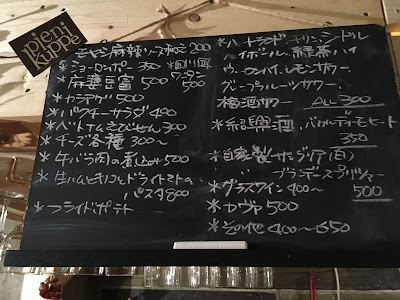 pieni
kuppe
モヤシ麻辣ソース和え 200
*ショーロンポー 350
*四川風
ワンタン
500
*麻婆豆富 500
*カラアゲ 500
*パクチーサラダ 400
*ベトナムえびせん 300
*チーズ各種 300〜
*牛バラ肉の煮込み 500
*生ハムときのことドライトマトの
パスタ 800
*フライドポテト
*ハートランド キリン、シードル
ハイボール、緑茶ハイ
ウーロンハイ、レモンサワー
グレープフルーツサワー
梅酒サワー ALL 300
*紹興酒、バカルディモヒート
350
*自家製サングリア(白)
ブランデースプリッツァー
500
*グラスワイン 400〜
*カヴァ 500
*その他 400〜650